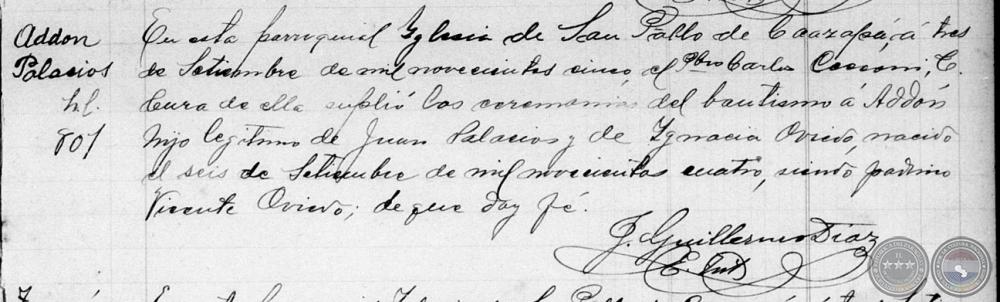 Addon
Palacios
hl.
801
En esta parroquial Yglesia de San Pablo de Caazapá, á tres
de Setiembre de mil novecientos cinco, el Pbro Carlos C.
Cura de ella suplió las ceremonias del bautismo á Addón
hijo legitimo de Juan Palacios y de Ygnacia Oviedo, nacido
el seis de Setiembre de mil novecientos cuatro, siendo padrino
Vicente Oviedo; de que doy fé.
J. Guillermo Díaz